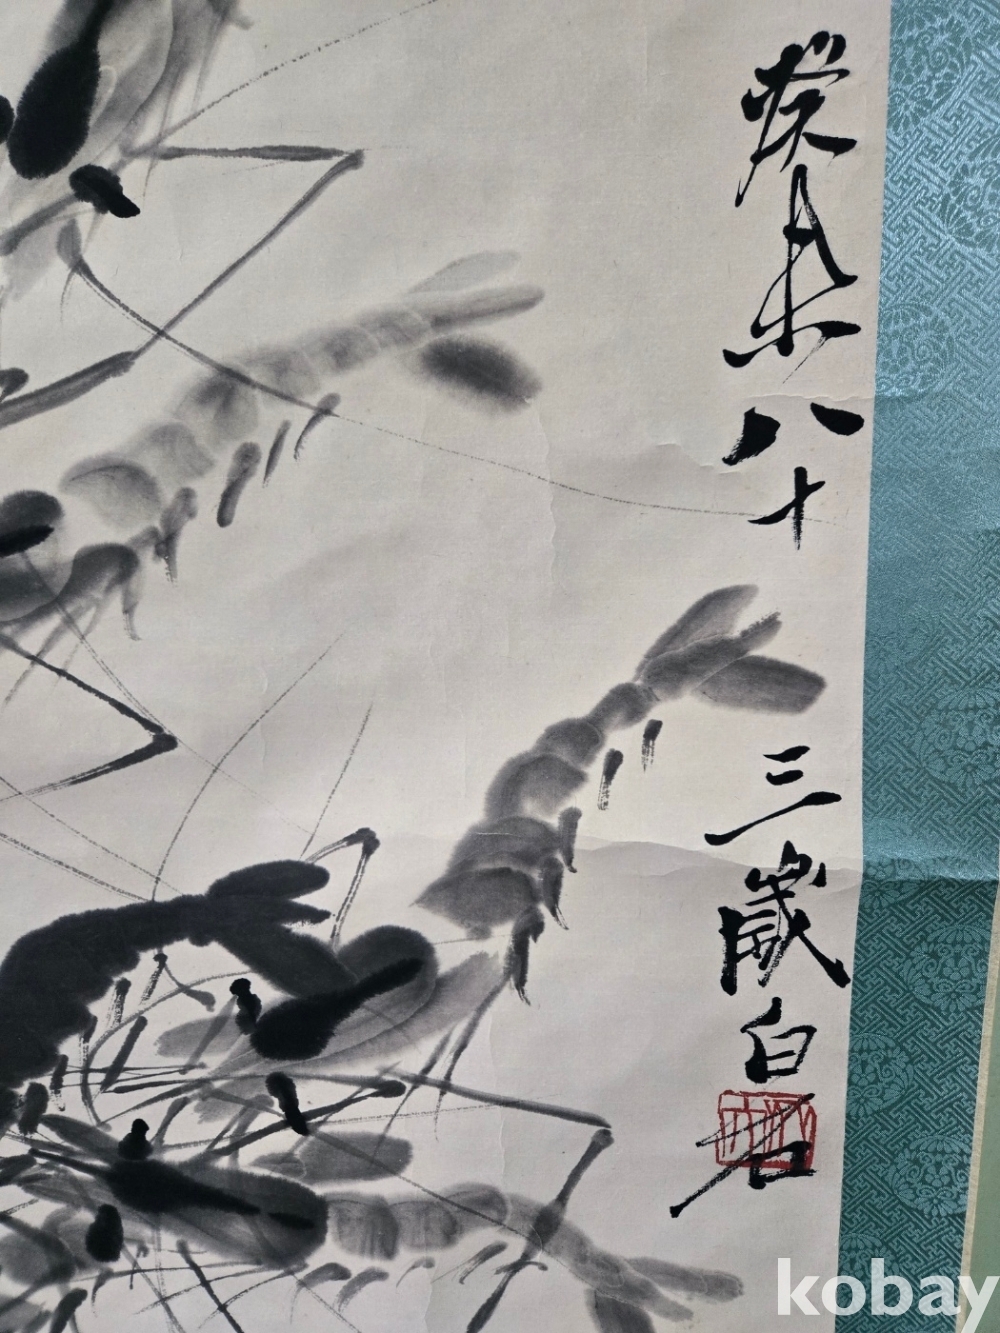 癸未八十三歲白石
kobay